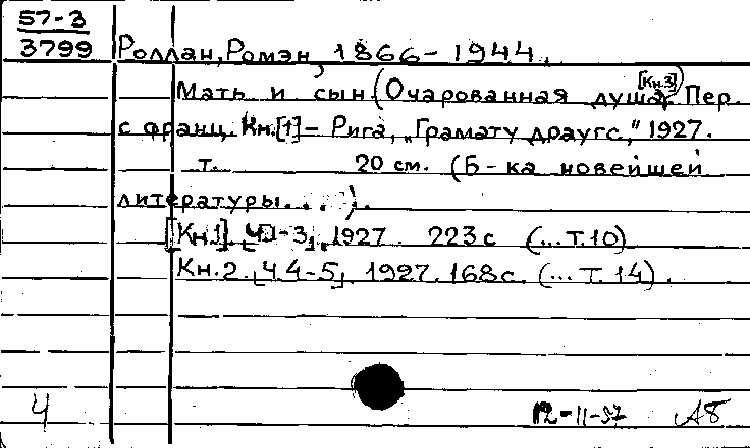 57-3
3799
Роллан, Ромэн, 1866-1944.
Мать и сын (Очарованная душа. [Кн.3]) Пер.
с франц. Кн.[1]- Рига, „Грамату драугс," 1927.
т. 20 см. (Б-ка новейшей
литературы. . . .).
[Кн.1]. [Ч1-3]. 1927. 223с (...Т.10)
Кн.2. [Ч.4-5]. 1927. 168с. (... Т. 14).
4
12-11-57 АБ